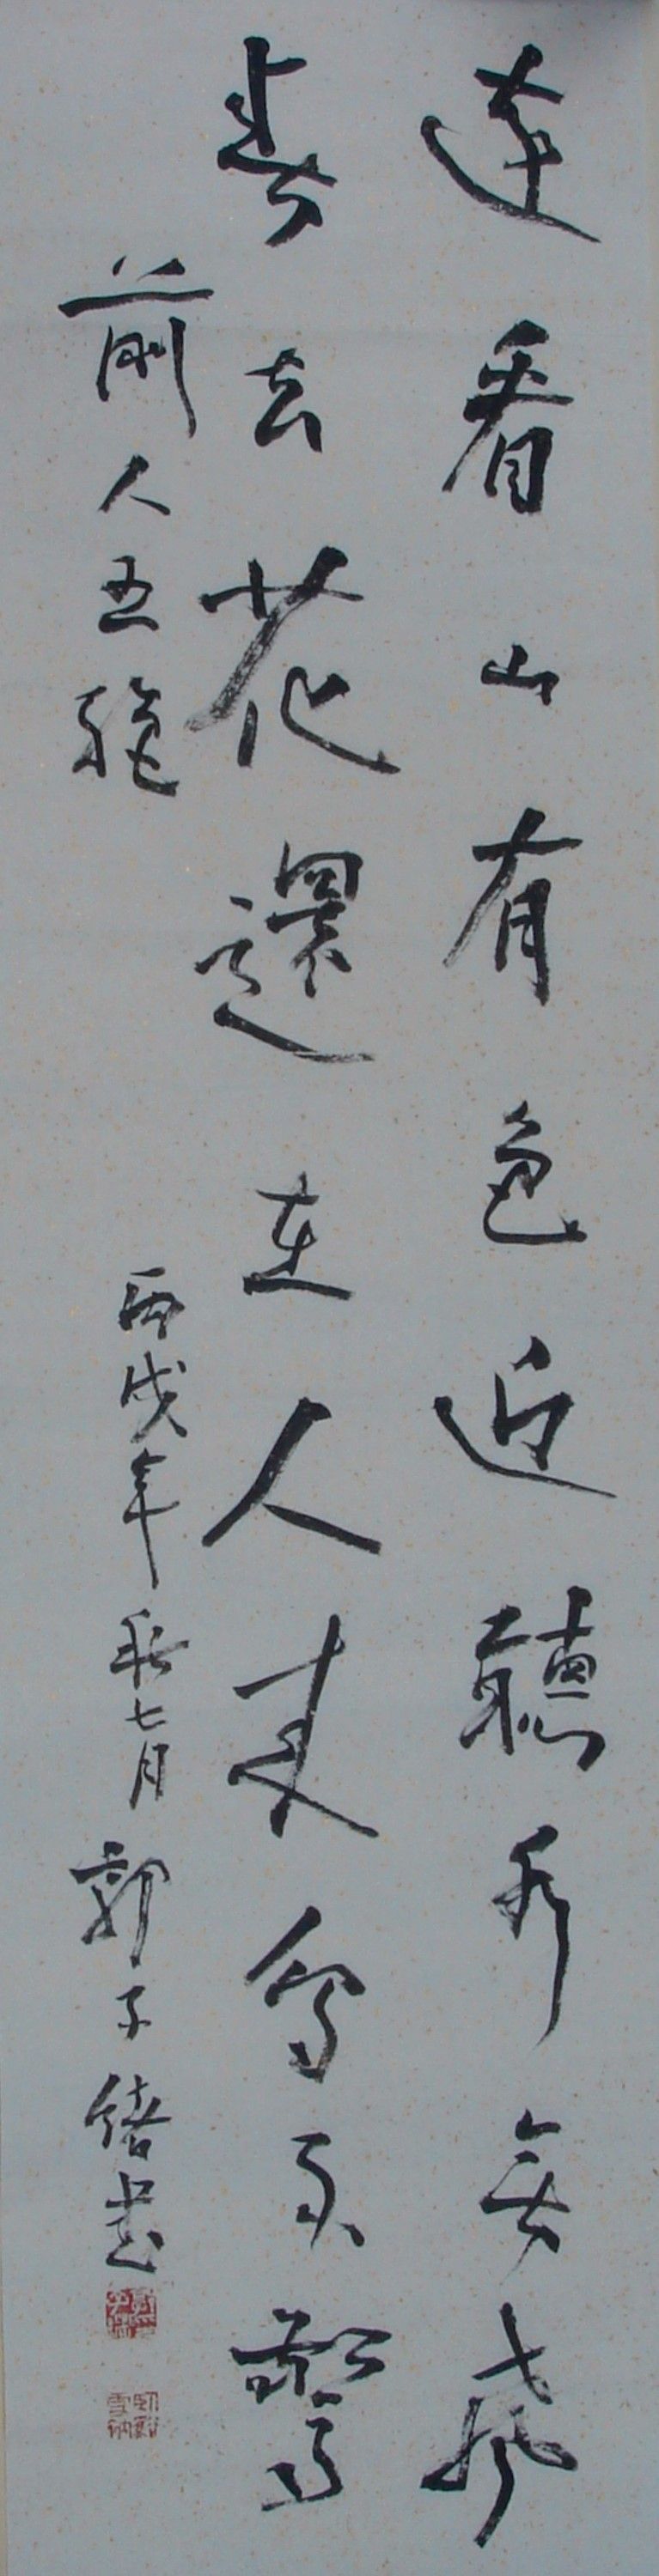 遠看山有色近聽水無聲
春去花還在人來鳥不驚
前人五絕
丙戌年秋七月郭子緒書